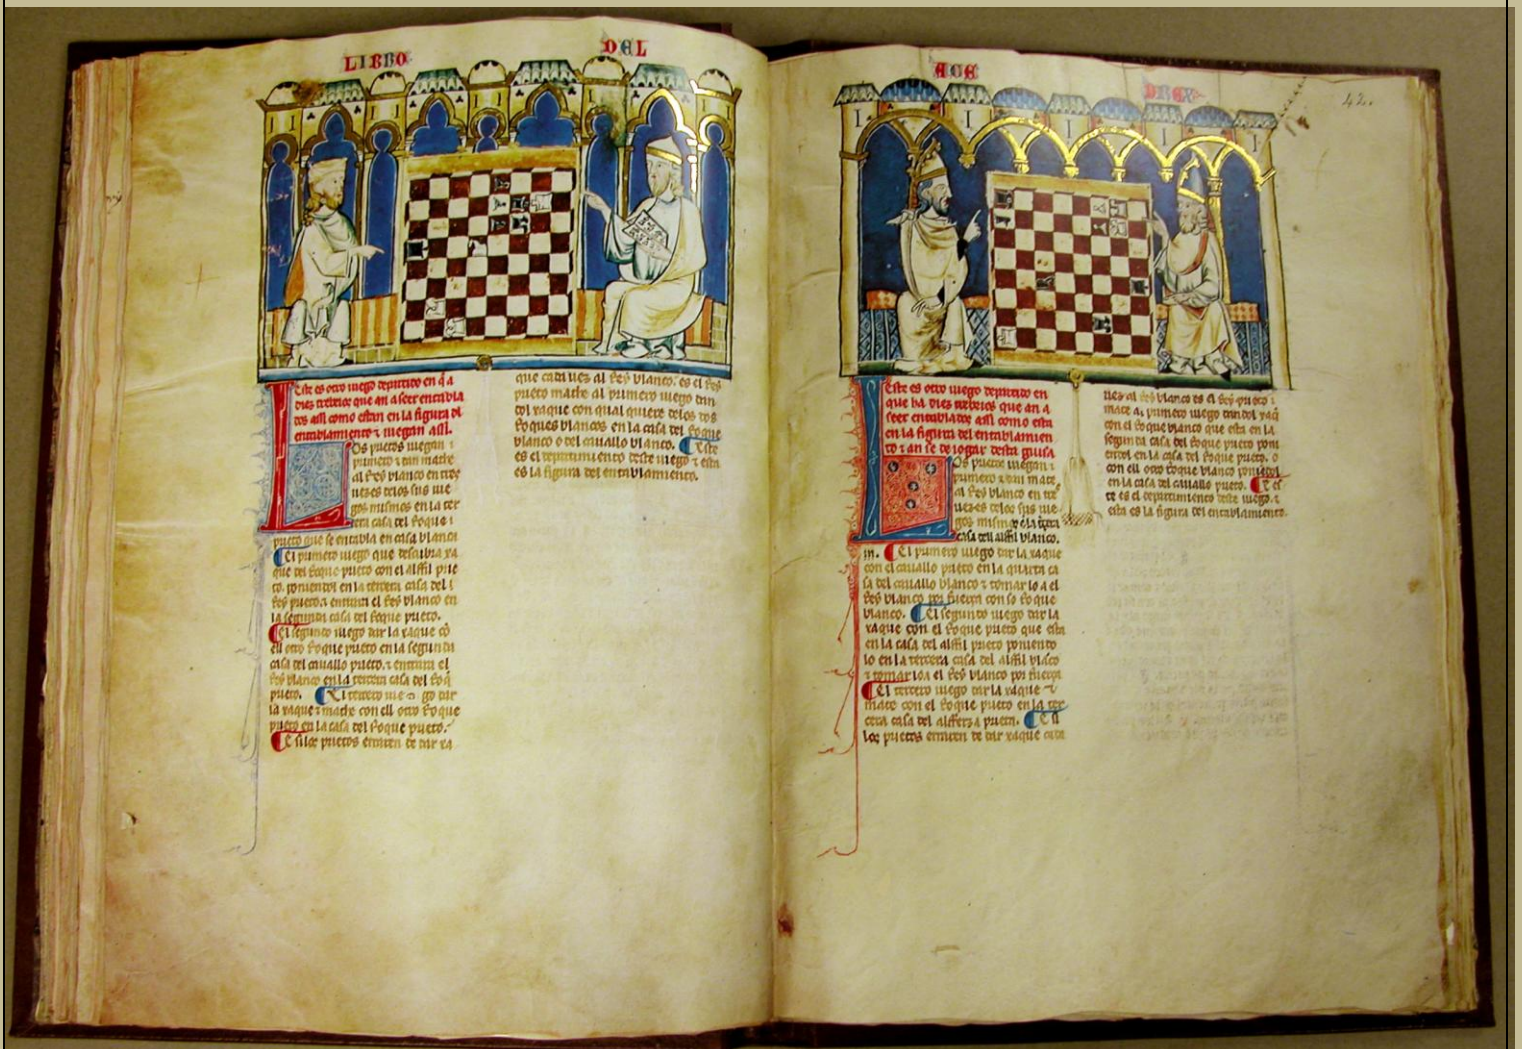 LIBRO DEL
Este es otro iuego departido en q̃ a
diez trebeios que an a seer entabla
dos assi como estan en la figura dl
entablamiento ⁊ iuegan assi.
Los prietos iuegan
primero ⁊ dan mathe
al Rey blanco en tres
uezes delos sus iue
gos mismos en la ter
cera casa del Roque
prieto que se entabla en casa blanca
El primero iuego que descubra xa
que del Roque prieto con el alffil prie
to. poniendol en la tercera casa del
Rey prieto. ⁊ entrara el Rey blanco en
la segunda casa del Roque prieto.
El segundo iuego dar la xaque cõ
ell otro Roque prieto en la segunda
casa del cauallo prieto. ⁊ entrara el
Rey blanco en la tercera casa del Roq̃
prieto. El tercero iue go dar
la xaque ⁊ mathe con ell otro Roque
prieto en la casa del Roque prieto.
E si los prietos erraren de dar xa
que cada uez al Rey blanco. es el Rey
prieto mathe al primero iuego dan
dol xaque con qual quiere delos dos
Roques blancos en la casa del Roque
blanco o del cauallo blanco. Este
es el departimiento deste iuego ⁊ esta
es la figura del entablamiento.
ACE DREX
42.
Este es otro iuego departido en
que ha diez trebeios que an a
seer entablados assi como esta
en la figura del entablamien
to ⁊ an se de iogar desta guisa
Los prietos iuegan
primero ⁊ dan mate
al Rey blanco en tres
uezes delos sus iue
gos mismos en la tercera
casa dell alffil blanco.
El primero iuego dar la xaque
con el cauallo prieto en la quarta ca
sa del cauallo blanco ⁊ tomar lo a el
Rey blanco por fuerça con so Roque
blanco. El segundo iuego dar la
xaque con el Roque prieto que esta
en la casa del alffil prieto poniendo
lo en la tercera casa del alffil blãco
⁊ tomar lo a el Rey blanco por fuerça
El tercero iuego dar la xaque ⁊
mate con el Roque prieto en la ter
cera casa del alfferza prieta. E si
los prietos erraren de dar xaque cada
uez al Rey blanco es el Rey prieto
mate al primero iuego dandol xaq̃
con el Roque blanco que esta en la
segunda casa del Roque prieto poni
endol en la casa del Roque prieto. o
con ell otro Roque blanco poniẽdol
en la casa del cauallo prieto. E es
te es el departimiento deste iuego. ⁊
esta es la figura del entablamiento.